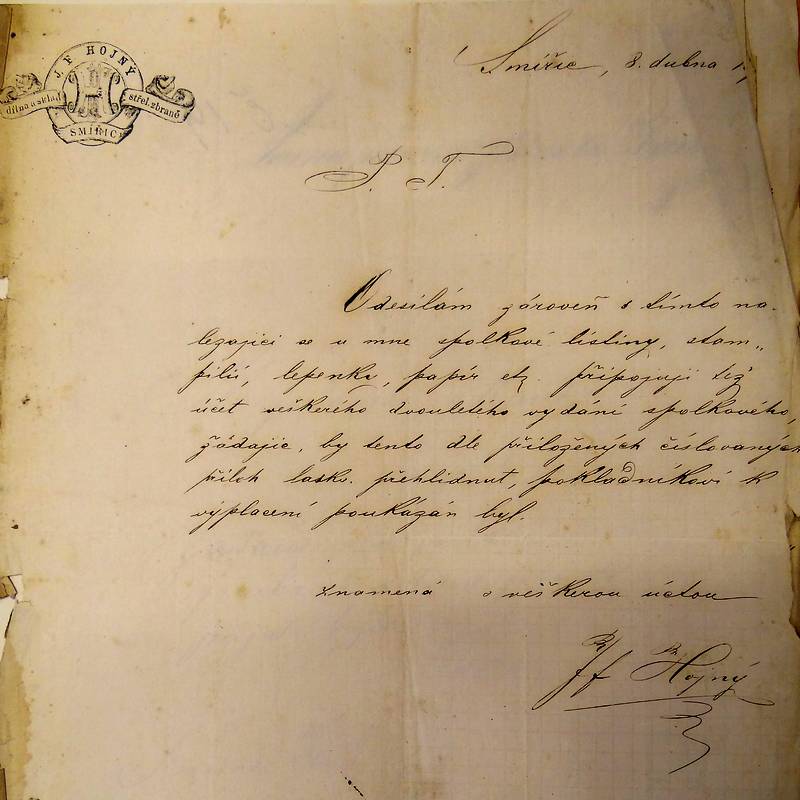 J. F. HOJNÝ
dílna a sklad
střel. zbraně
SMIŘIC
Smiřic, 8. dubna
P. T.
Odesílám zároveň s tímto na-
lezající se u mne spolkové listiny, stam„
pilii, lepenku, papír etz. připojuji též
účet veškerého dvouletého vydání spolkového,
žádajíc, by tento dle přiložených číslovaných
příloh lask. přehlídnut, pokladníkovi k
vyplacení poukázán byl.
znamená s veškerou úctou
JF Hojný